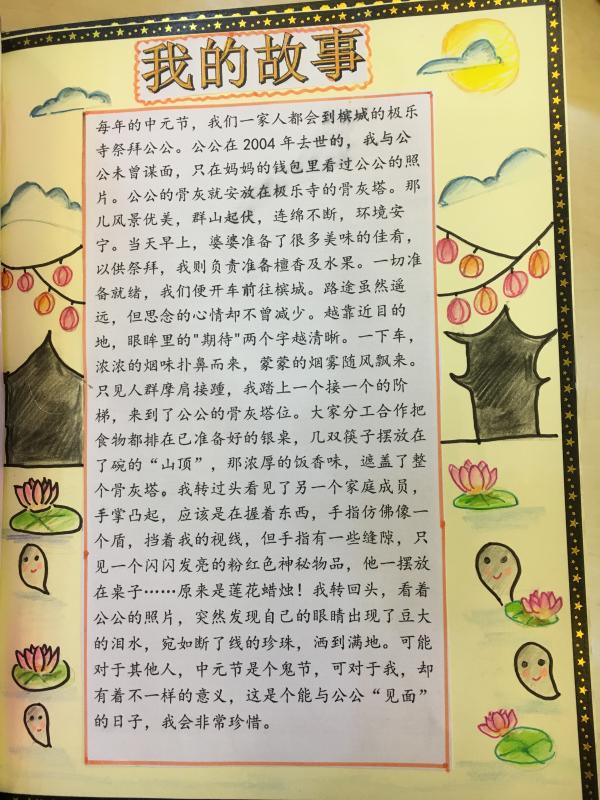 我的故事
每年的中元节，我们一家人都会到槟城的极乐
寺祭拜公公。公公在 2004 年去世的，我与公
公未曾谋面，只在妈妈的钱包里看过公公的照
片。公公的骨灰就安放在极乐寺的骨灰塔。那
儿风景优美，群山起伏，连绵不断，环境安
宁。当天早上，婆婆准备了很多美味的佳肴，
以供祭拜，我则负责准备檀香及水果。一切准
备就绪，我们便开车前往槟城。路途虽然遥
远，但思念的心情却不曾减少。越靠近目的
地，眼眸里的"期待"两个字越清晰。一下车，
浓浓的烟味扑鼻而来，蒙蒙的烟雾随风飘来。
只见人群摩肩接踵，我踏上一个接一个的阶
梯，来到了公公的骨灰塔位。大家分工合作把
食物都排在已准备好的银桌，几双筷子摆放在
了碗的“山顶”，那浓厚的饭香味，遮盖了整
个骨灰塔。我转过头看见了另一个家庭成员，
手掌凸起，应该是在握着东西，手指仿佛像一
个盾，挡着我的视线，但手指有一些缝隙，只
见一个闪闪发亮的粉红色神秘物品，他一摆放
在桌子……原来是莲花蜡烛！我转回头，看着
公公的照片，突然发现自己的眼睛出现了豆大
的泪水，宛如断了线的珍珠，洒到满地。可能
对于其他人，中元节是个鬼节，可对于我，却
有着不一样的意义，这是个能与公公“见面”
的日子，我会非常珍惜。